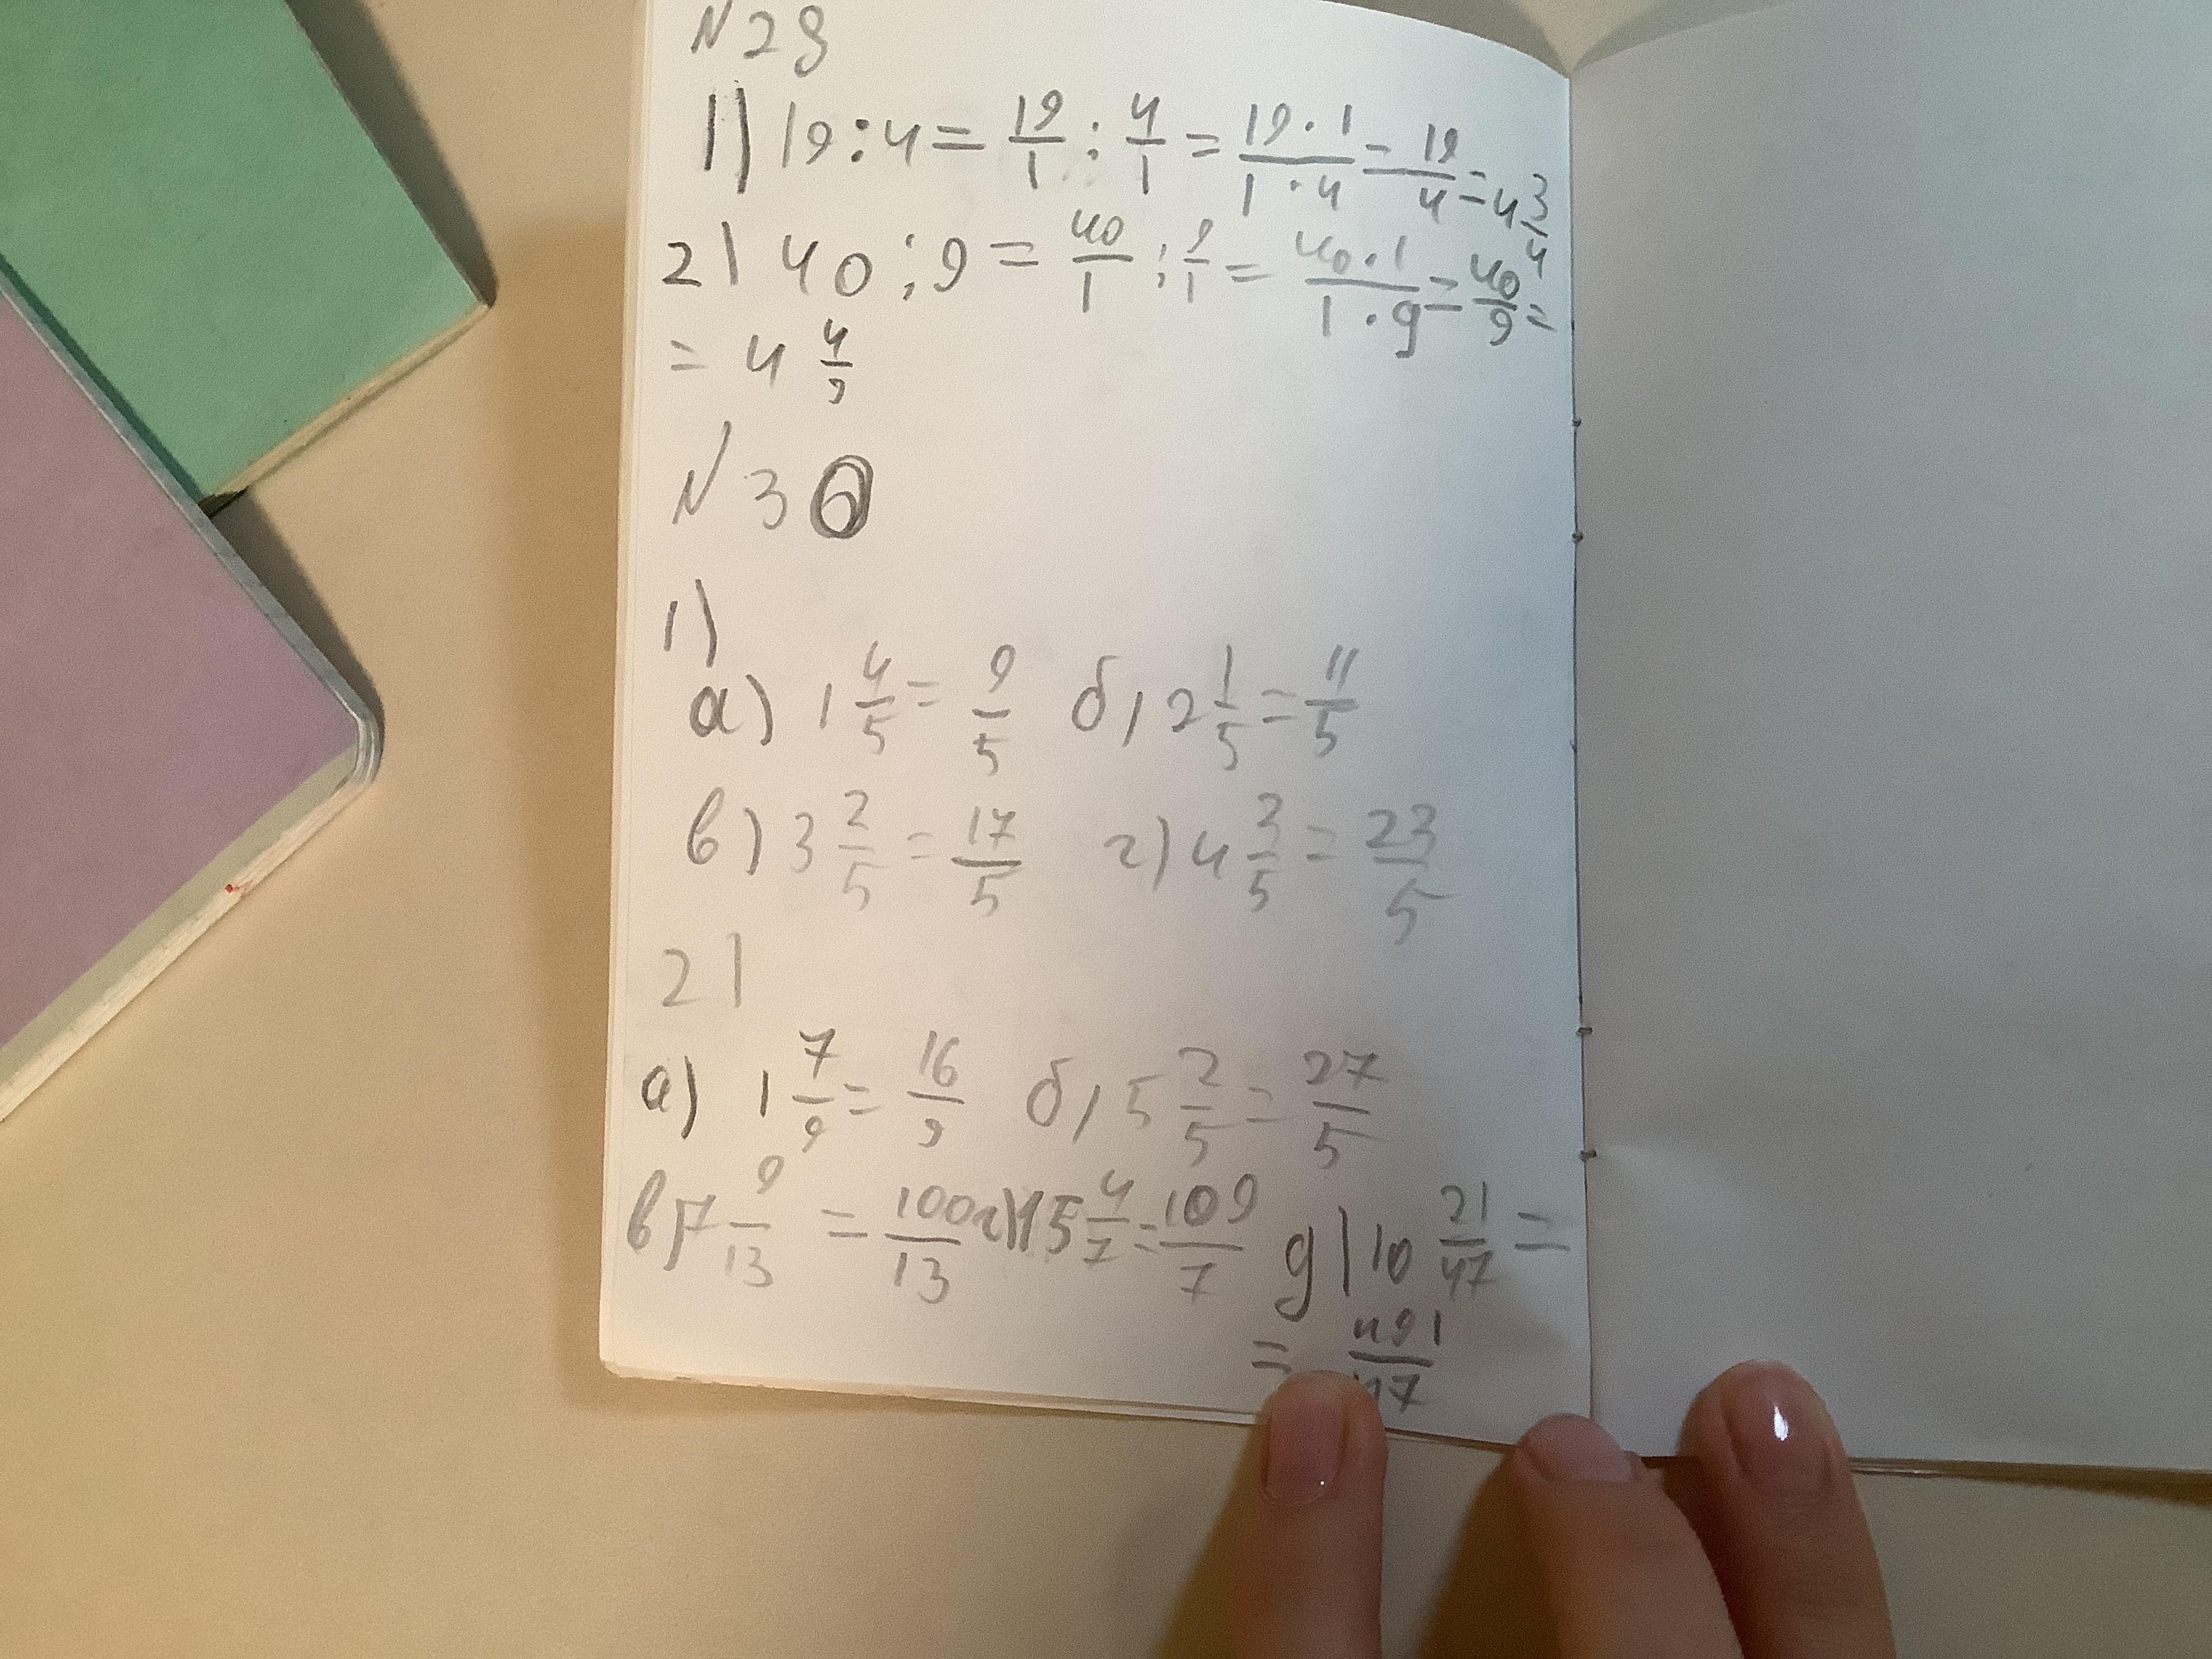 N 29
1) 19 : 4 = 19/1 : 4/1 = 19 · 1/1 · 4 = 19/4 = 4 3/4
2) 40 : 9 = 40/1 : 9/1 = 40 · 1/1 · 9 = 40/9 =
= 4 4/9
N 30
1)
а) 1 4/5 = 9/5 б) 2 1/5 = 11/5
в) 3 2/5 = 17/5 г) 4 3/5 = 23/5
2)
а) 1 7/9 = 16/9 б) 5 2/5 = 27/5
в) 7 9/13 = 100/13 г) 15 4/7 = 109/7 д) 10 21/47 =
= 491/47